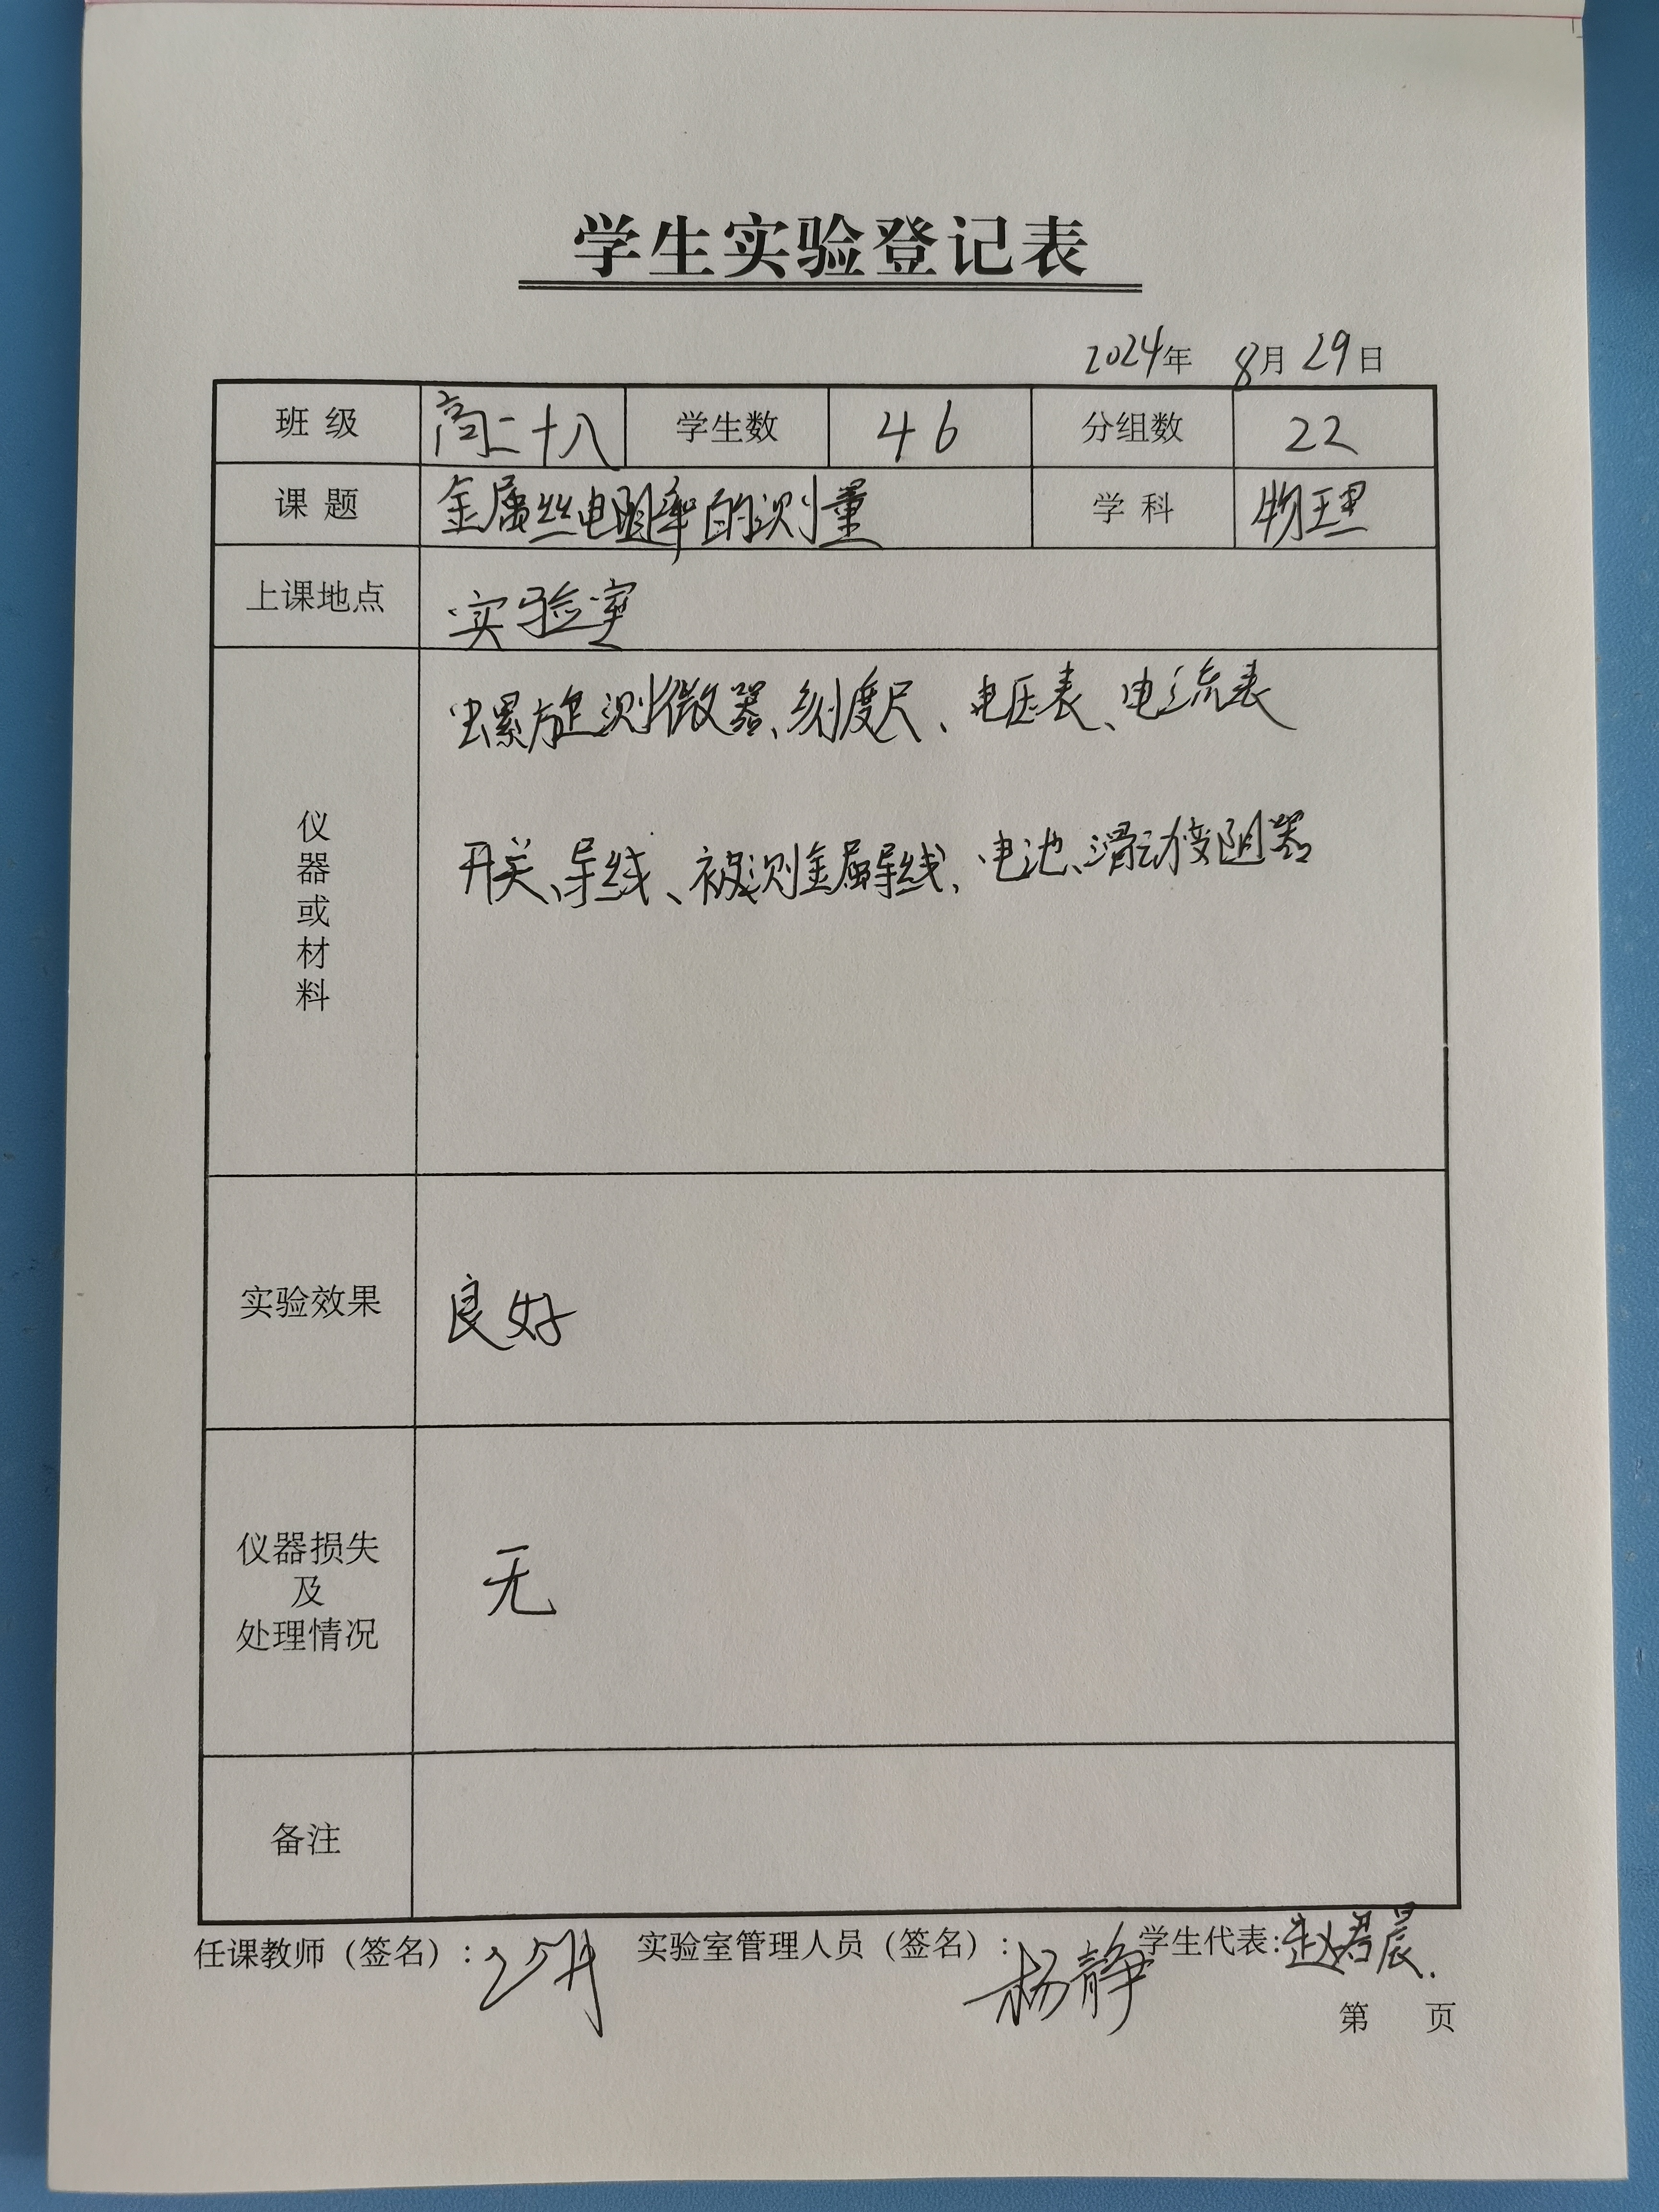 学生实验登记表
2024年 8月29日
班级 高二十八 学生数 46 分组数 22
课题 金属丝电阻率的测量 学科 物理
上课地点 实验室
仪器或材料
螺旋测微器、刻度尺、电压表、电流表
开关、导线、被测金属导线、电池、滑动变阻器
实验效果 良好
仪器损失
及
处理情况
无
备注
任课教师（签名）: 实验室管理人员（签名）: 杨静 学生代表: 赵君晨.
第 页